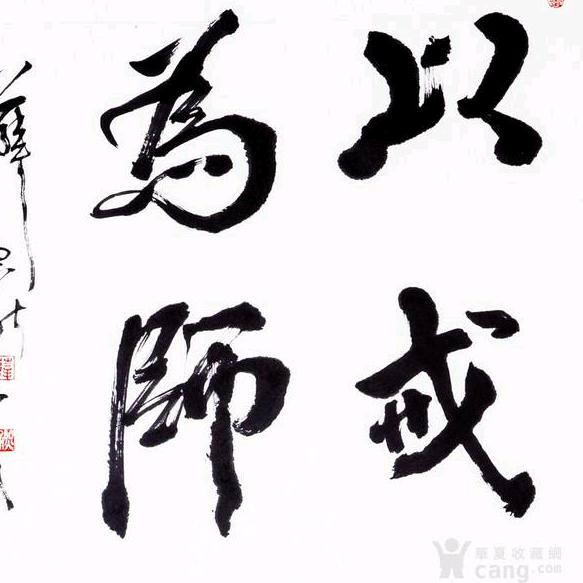 以戒
為師
華夏收藏網
cang.com